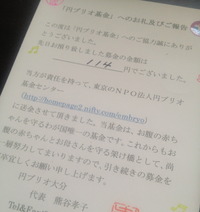 「円ブリオ基金」へのお礼及びご報告
この度は「円ブリオ基金」へのご協力誠にありがとうございました。
先日お振り返しました募金の金額は
114 円でございました。
当方が責任を持って、東京のNPO法人円ブリオ
基金センター
(http://homepage2.nifty.com/embryo)
に送金させて頂きました。当基金は、お腹の赤ち
ゃんを守るわが国唯一の基金です。これからもお
腹の赤ちゃんとお母さんを守る架け橋として、尚
一層努力してまいりますので、引き続きの募金を
宜しくお願い申し上げます。
円ブリオ大分
代表 熊谷孝子
Tel&